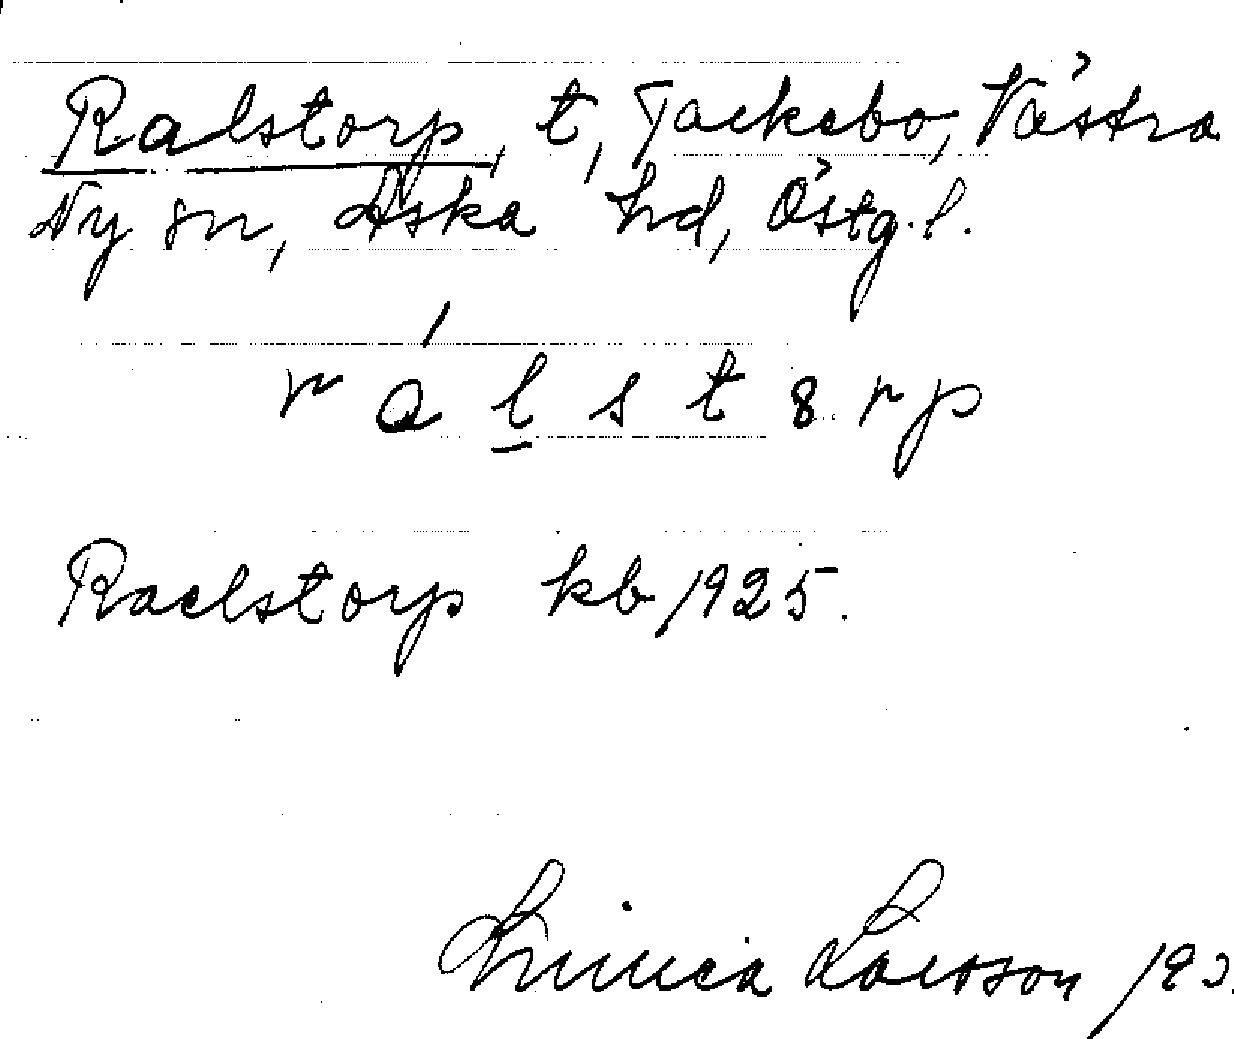 Ralstorp, t, Tackebo, Västra
Ny sn, Aska hd, Östg. l.
r a l s t 8 r p
Raelstorp kb 1925.
Linnea Larsson 193.